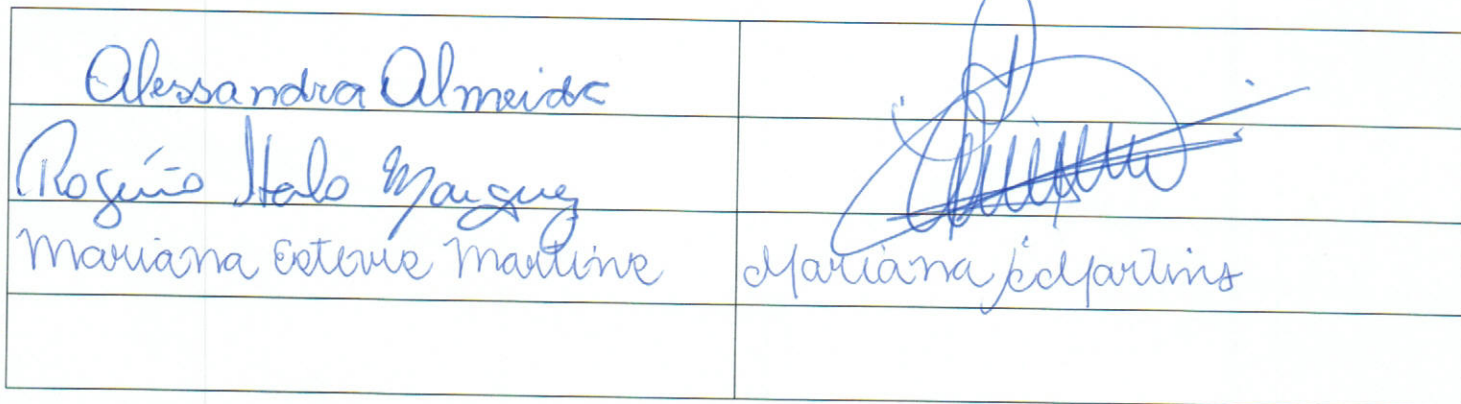 Alessandra Almeida
Rogério Italo Marques
Mariana Esteves Martins Mariana E Martins